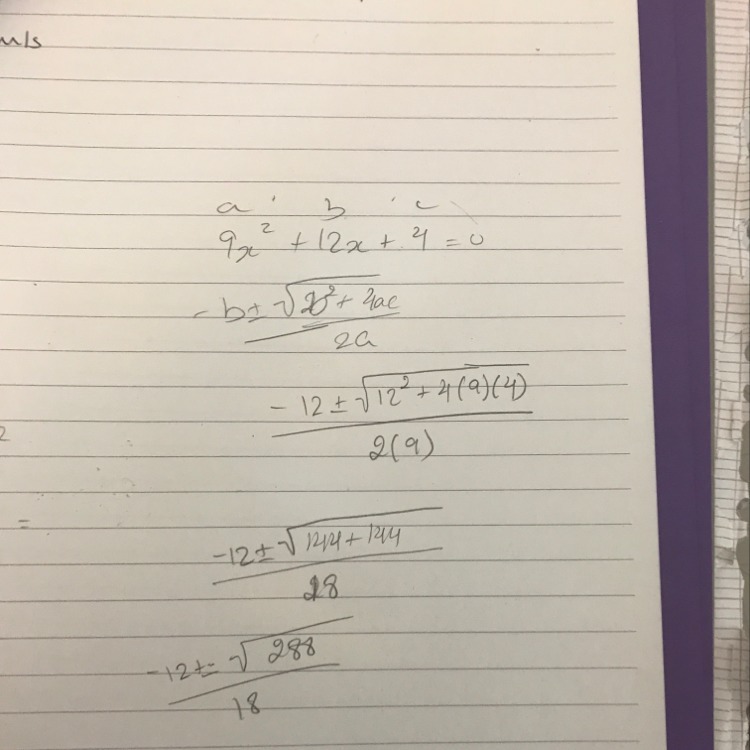 m/s
a b c
9x² + 12x + 4 = 0
-b ± √b² + 4ac
2a
-12 ± √12² + 4(9)(4)
2(9)
2
=
-12 ± √144 + 144
18
-12 ± √288
18